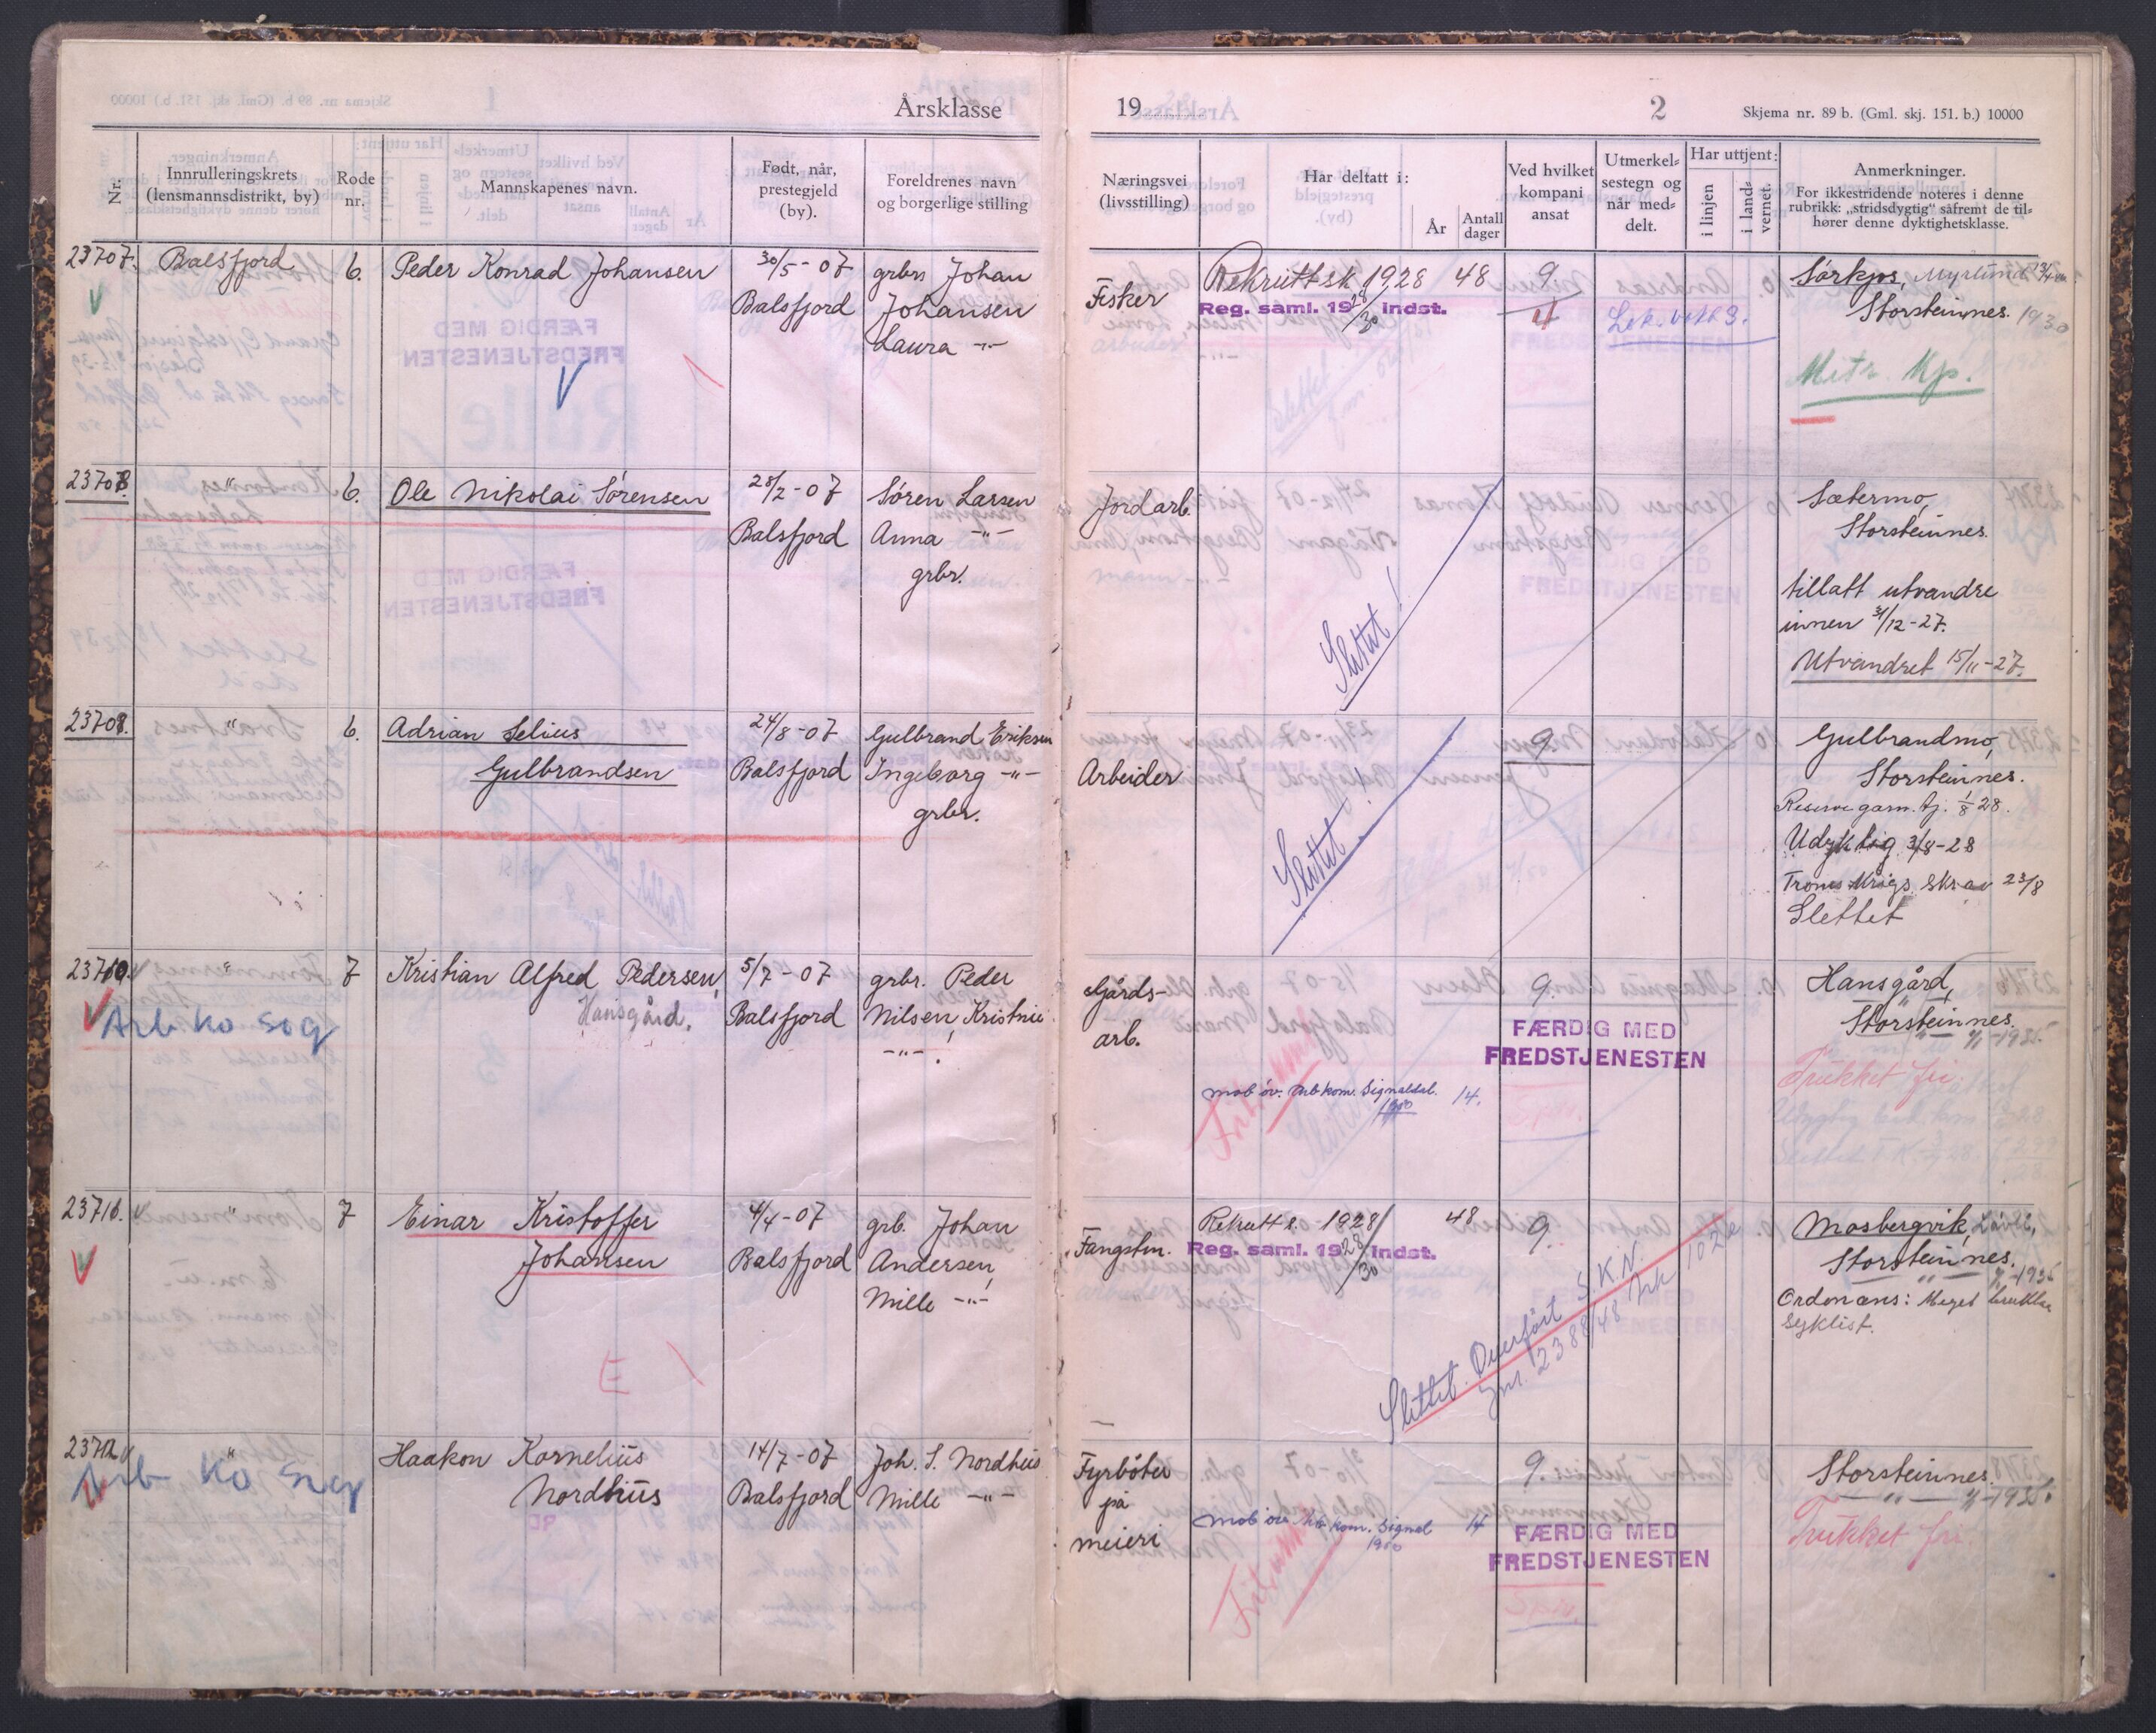 Årsklasse
19
2
Skjema nr. 89 b. (Gml. skj. 151. b.) 10000
Nr.
Innrulleringskrets
(lensmannsdistrikt, by)
Rode
nr.
Mannskapenes navn.
Født, når,
prestegjeld
(by).
Foreldrenes navn
og borgerlige stilling
Næringsvei
(livsstilling)
Har deltatt i:
År
Antall
dager
Ved hvilket
kompani
ansat
Utmerkel-
sestegn og
når med-
delt.
Har uttjent:
i linjen
i land-
vernet.
Anmerkninger.
For ikkestridende noteres i denne
rubrikk: „stridsdygtig" såfremt de til-
hører denne dyktighetsklasse.
23707.
Balsfjord
6.
Peder Konrad Johansen
30/5-07
Balsfjord
grbr. Johan
Johansen
Laura -"-
Fisker
Rekruttsk. 1928 48
Reg. saml. 1928/30 indst.
9.
4
Sørkjos, Myrlund
Storsteinnes. 1930
Mitr. Kp.
23708.
"
6.
Ole Nikolai Sørensen
28/2-07
Balsfjord
Søren Larsen
Anna -"-
grbr.
Jordarb.
Slettet!
Sætermo,
Storsteinnes.
tillatt utvandre
innen 31/12-27.
Utvandret 15/11-27.
23709.
"
6.
Adrian Selius
Gulbrandsen
24/8-07
Balsfjord
Gulbrand Eriksen
Ingeborg -"-
grbr.
Arbeider
Slettet!
9.
Gulbrandmo,
Storsteinnes.
Reserve garn. tj. 1/8 28.
Udyktig 3/8-28
Troms Krigs. Skr av 23/8
Slettet
23710.
"
7
Kristian Alfred Pedersen,
Hansgård.
Arb Ko Sig
5/7-07
Balsfjord
grbr. Peder
Nilsen, Kristine
-"-.
Gårds-
arb.
mob öv. Arbkom. Signaldal. 14.
1950
9.
FÆRDIG MED
FREDSTJENESTEN
Hansgård,
Storsteinnes.
-1935.
Trukket fri.
23711.
"
7
Einar Kristoffer
Johansen
E
4/4-07
Balsfjord
grb. Johan
Andersen,
Mille -"-
Fangstm.
Rekrutts. 1928 48
Reg. saml. 1928/30 indst.
9.
Slettet. Overført S.K.N.
Mosbergvik,
Storsteinnes.
-1935
Ordonans: Meget brukbar
syklist.
23712
"
Arb Ko Sig
Haakon Kornelius
Nordhus
14/7-07
Balsfjord
Joh. S. Nordhus
Mille -"-
Fyrbøter
på
meieri
mob öv Arb kom. Signal 14
1950
9.
FÆRDIG MED
FREDSTJENESTEN
Storsteinnes.
-1935.
Trukket fri.